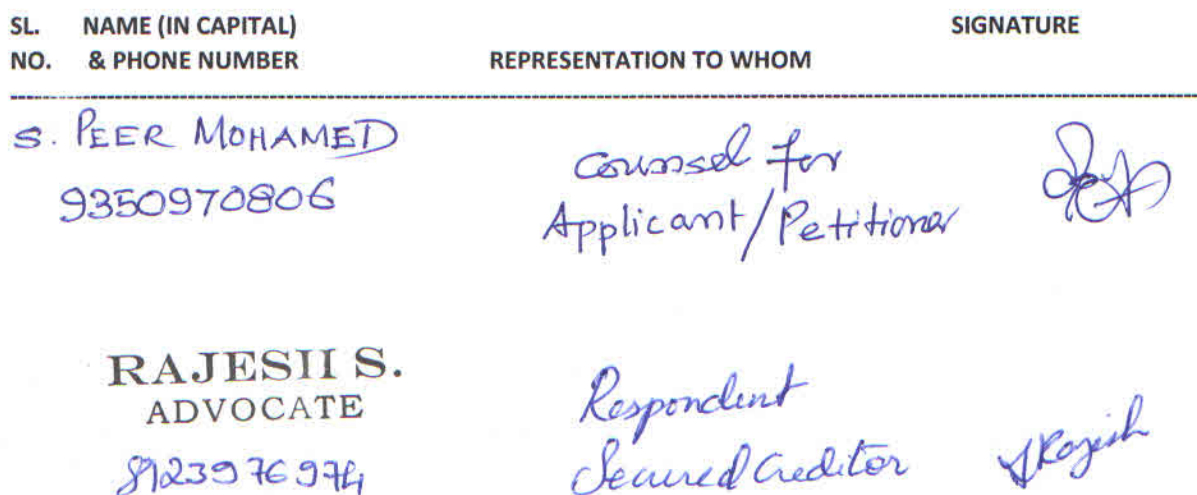 SL. NAME (IN CAPITAL) SIGNATURE
NO. & PHONE NUMBER REPRESENTATION TO WHOM
S. PEER MOHAMED
9350970806
Counsel for
Applicant/Petitioner
RAJESH S.
ADVOCATE
8923976974
Respondent
Secured Creditor
S Rajesh